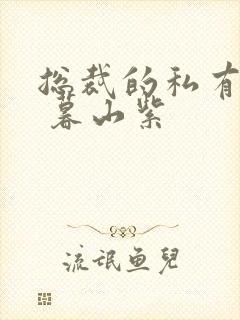 总裁的私有
暮山紫
流氓鱼兒